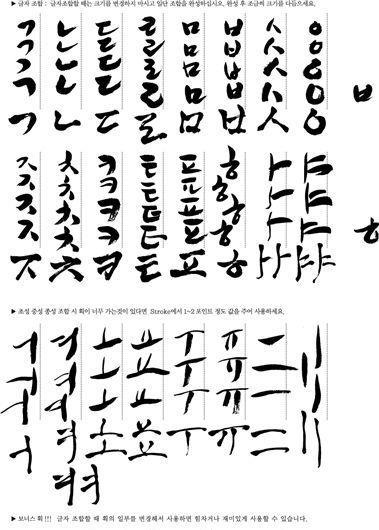 ▶ 글자 조합 : 글자조합할 때는 크기를 변경하지 마시고 일단 조합을 완성하십시오. 완성 후 조금씩 크기를 다듬으세요.
ㄱ ㄴ ㄷ ㄹ ㅁ ㅂ ㅅ ㅇ
ㄱ ㄴ ㄷ ㄹ ㅁ ㅂ ㅅ ㅇ
ㄱ ㄴ ㄷ ㄹ ㅁ ㅂ ㅅ ㅇ ㅂ
ㄱ ㄴ ㄷ ㄹ ㅁ ㅂ ㅅ ㅇ
ㅈ ㅊ ㅋ ㅌ ㅍ ㅎ ㅏ ㅑ
ㅈ ㅊ ㅋ ㅌ ㅍ ㅎ ㅏ ㅑ
ㅈ ㅊ ㅋ ㅌ ㅍ ㅎ ㅏ ㅑ ㅎ
ㅈ ㅊ ㅋ ㅌ ㅍ ㅎ ㅏㅏ ㅑㅑ
▶ 초성 중성 종성 조합 시 획이 너무 가는것이 있다면 Stroke에서 1~2 포인트 정도 값을 주어 사용하세요.
ㅓ ㅕ ㅗ ㅛ ㅜ ㅠ ㅡ ㅣ
ㅓ ㅕ ㅗ ㅛ ㅜ ㅠ ㅡ ㅣ
ㅓ ㅕ ㅗ ㅛ ㅜ ㅠ ㅡ ㅣ
ㅓ ㅕ ㅗ ㅛ ㅜ ㅠ ㅡ ㅣ
▶ 보너스 획 !!! 글자 조합할 때 획의 일부를 변경해서 사용하면 힘차거나 재미있게 사용할 수 있습니다.